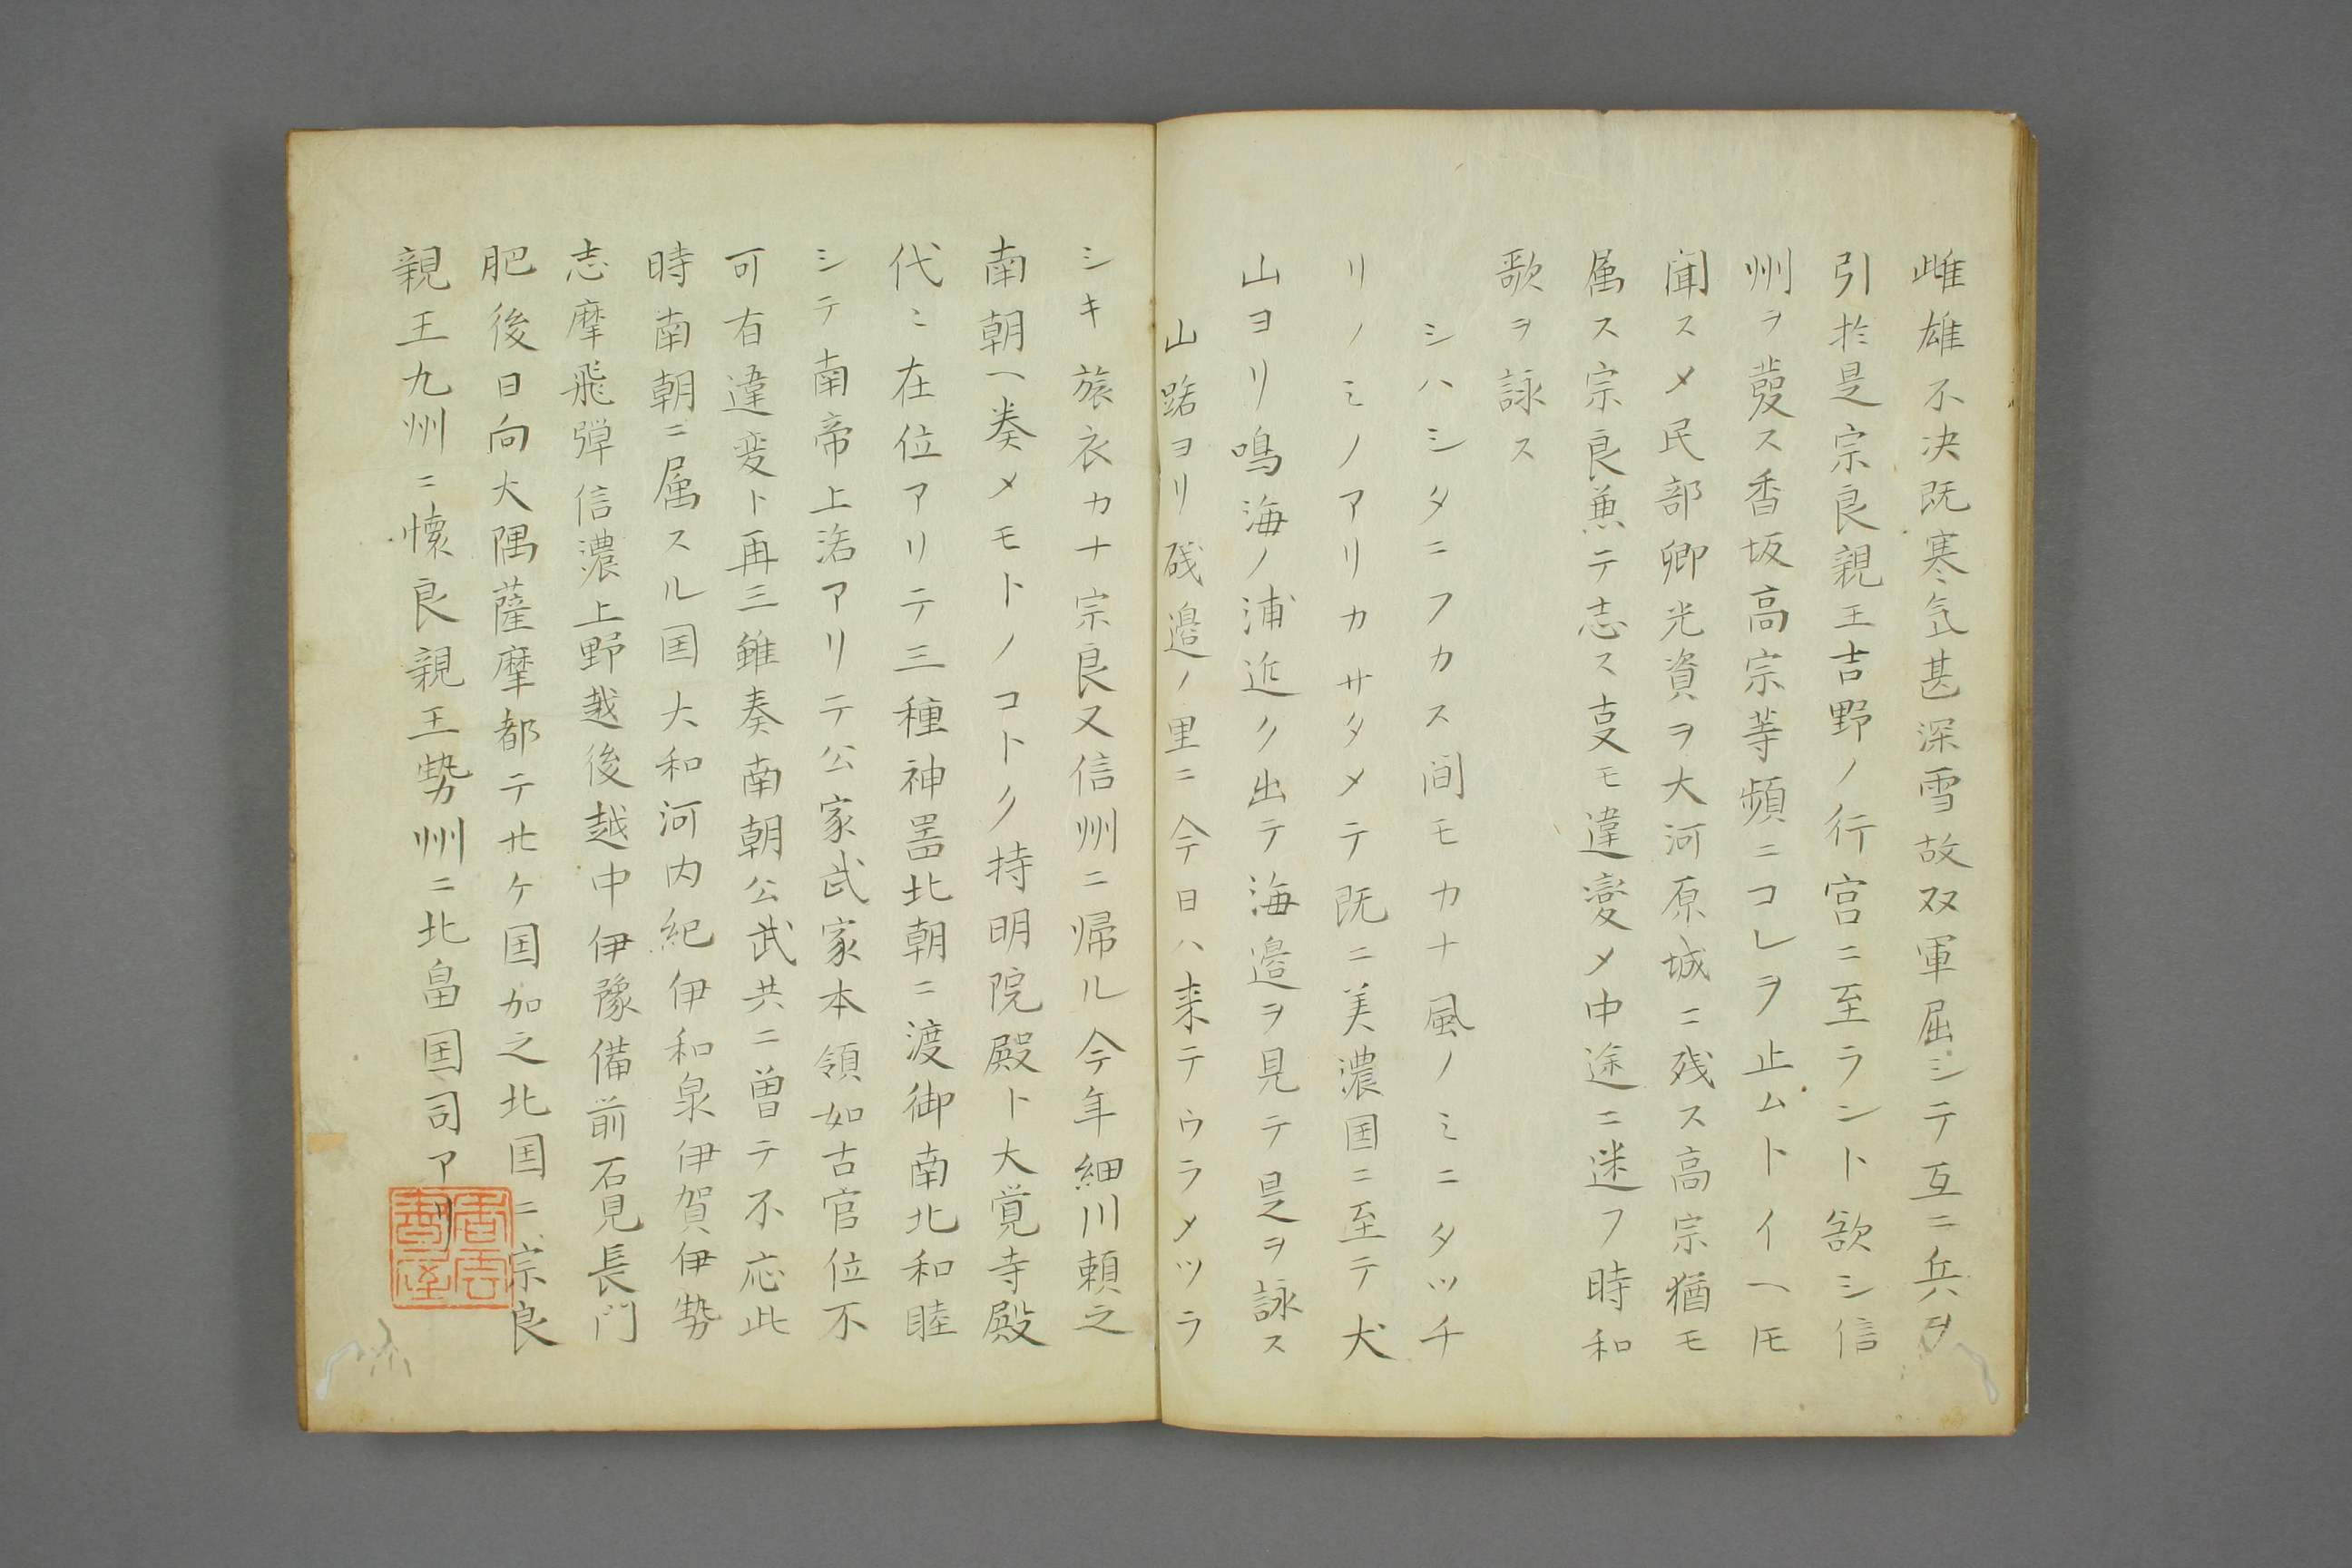 雌雄不决既寒気甚深雪故双軍屈シテ互ニ兵ヲ
引於是宗良親王吉野ノ行宮ニ至ラント欲シ信
州ヲ發ス香坂高宗等頻ニコレヲ止ムトイヘ𪜈
聞スメ民部卿光資ヲ大河原城ニ残ス高宗猶モ
属ス宗良兼テ志ス㕝モ違變メ中途ニ迷フ時和
歌ヲ詠ス
シハシタニフカス間モカナ風ノミニタツチ
リノミノアリカサタメテ既ニ美濃国ニ至テ犬
山ヨリ鳴海ノ浦近ク出テ海邉ヲ見テ是ヲ詠ス
山路ヨリ礒邉ノ里ニ今日ハ来テウラメツラ
シキ旅衣カナ宗良又信州ニ帰ル今年細川頼之
南朝ヘ奏メモトノコトク持明院殿ト大覚寺殿
代ミ在位アリテ三種神噐北朝ニ渡御南北和睦
シテ南帝上洛アリテ公家武家本領如古官位不
可有違変ト再三雖奏南朝公武共ニ曽テ不応此
時南朝ニ属スル国大和河内紀伊和泉伊賀伊勢
志摩飛弾信濃上野越後越中伊豫備前石見長門
肥後日向大隅薩摩都テ廿ケ国加之北国ニ宗良
親王九州ニ懐良親王勢州ニ北畠国司アリ